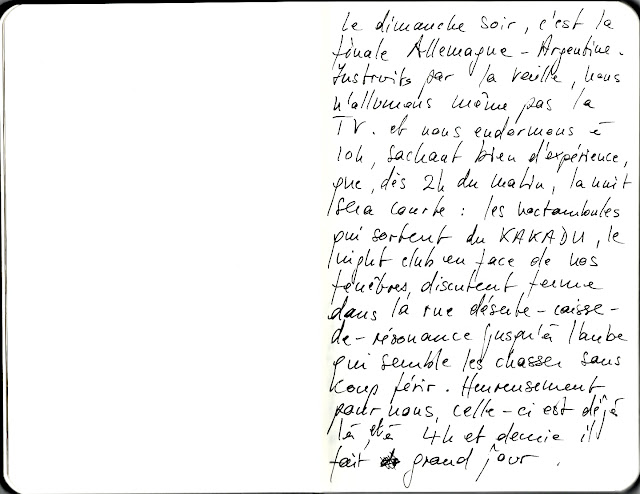 Le dimanche soir, c'est la
finale Allemagne - Argentine.
Instruits par la veille, nous
n'allumons même pas la
TV. et nous endormons à
10h, sachant bien d'expérience,
que, dès 2h du matin, la nuit
sera courte : les noctambules
qui sortent du KAKADU, le
night club en face de nos
fenêtres, discutent ferme
dans la rue déserte - caisse-
de-résonance jusqu'à l'aube
qui semble les chasser sans
coup férir. Heureusement
pour nous, celle-ci est déjà
là, et à 4h et demie il
fait grand jour.